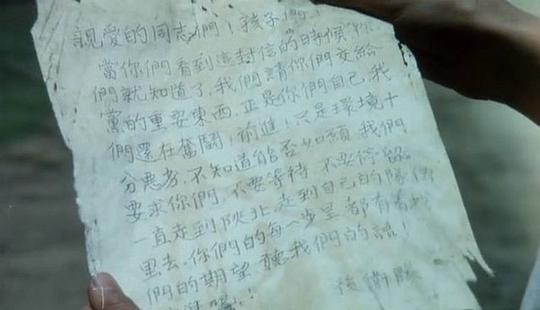 親愛的同志們，孩子們
當你們看到這封信的時候，你
們就知道了，我們請你們交給
黨的重要東西，正是你們自己，我
們還在奮鬪，前進，只是環境十
分惡劣，不知道能否如願 我們
要求你們，不要等待 不要停留
一直走到陝北，走到自己的隊伍
里去，你們的每一步里都有着我
們的期望 聽我們的話！
後衛隊